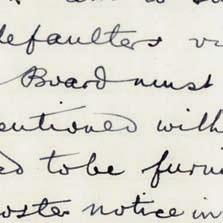 defaulters
Board must
entioned with
ed to be furn
oster notice in